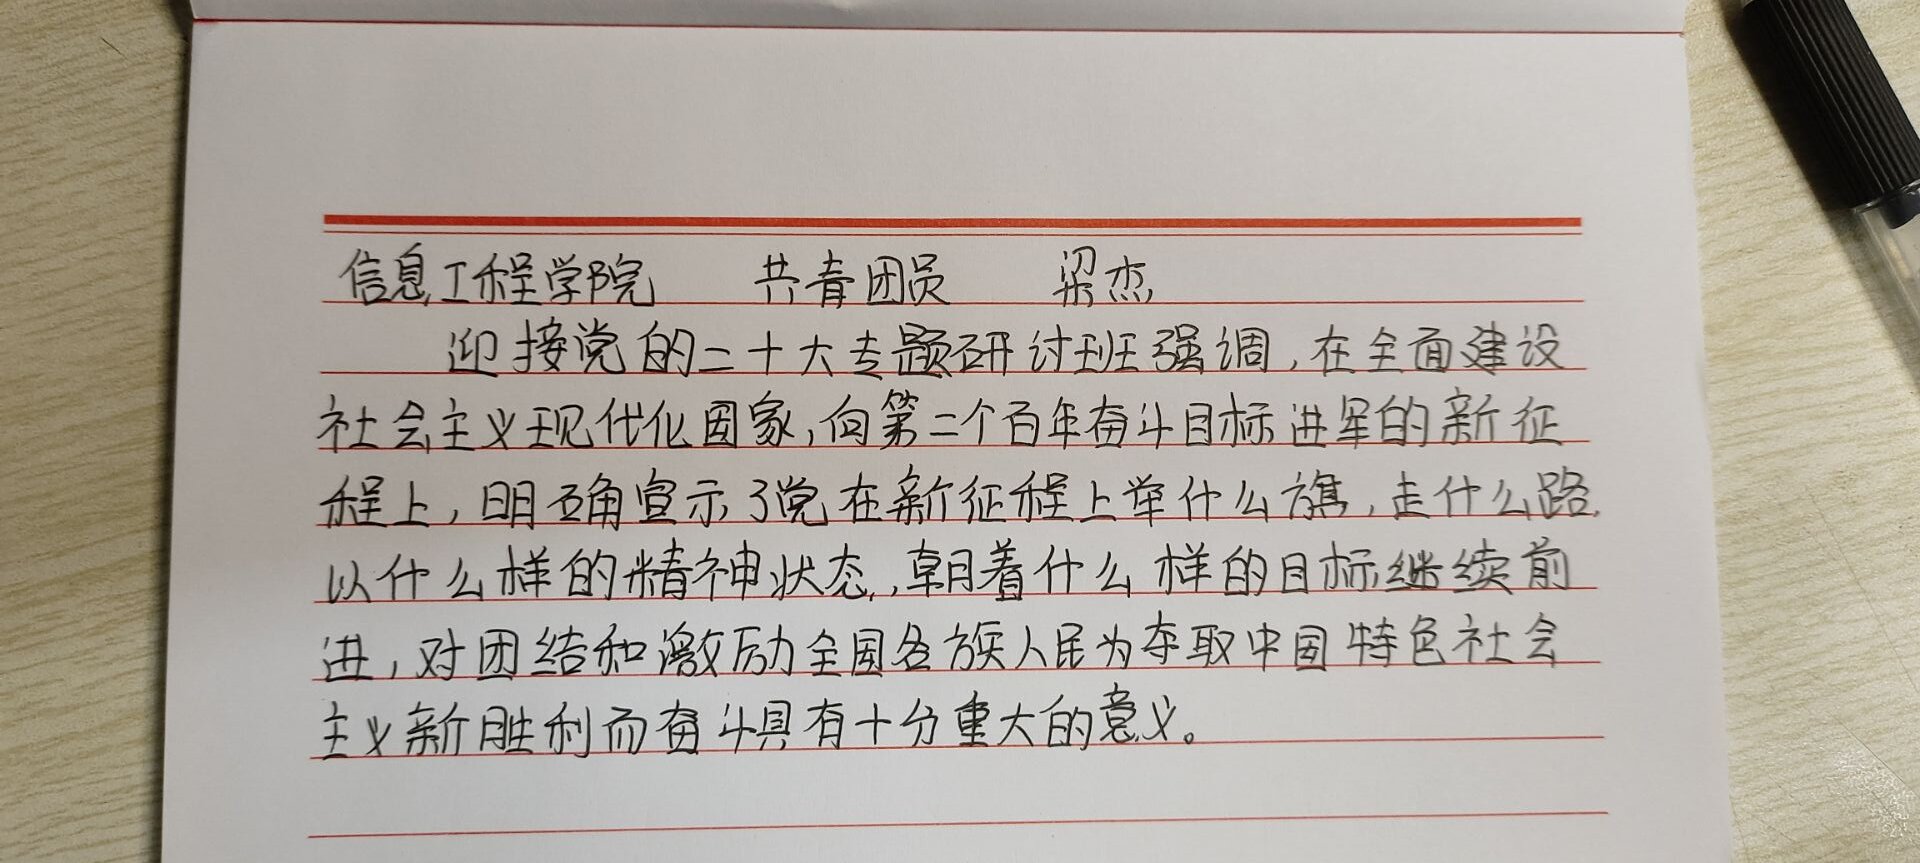 信息工程学院 共青团员 梁杰
迎接党的二十大专题研讨班强调,在全面建设
社会主义现代化国家,向第二个百年奋斗目标进军的新征
程上,明确宣示了党在新征程上举什么旗,走什么路,
以什么样的精神状态,朝着什么样的目标继续前
进,对团结和激励全国各族人民为夺取中国特色社会
主义新胜利而奋斗具有十分重大的意义。